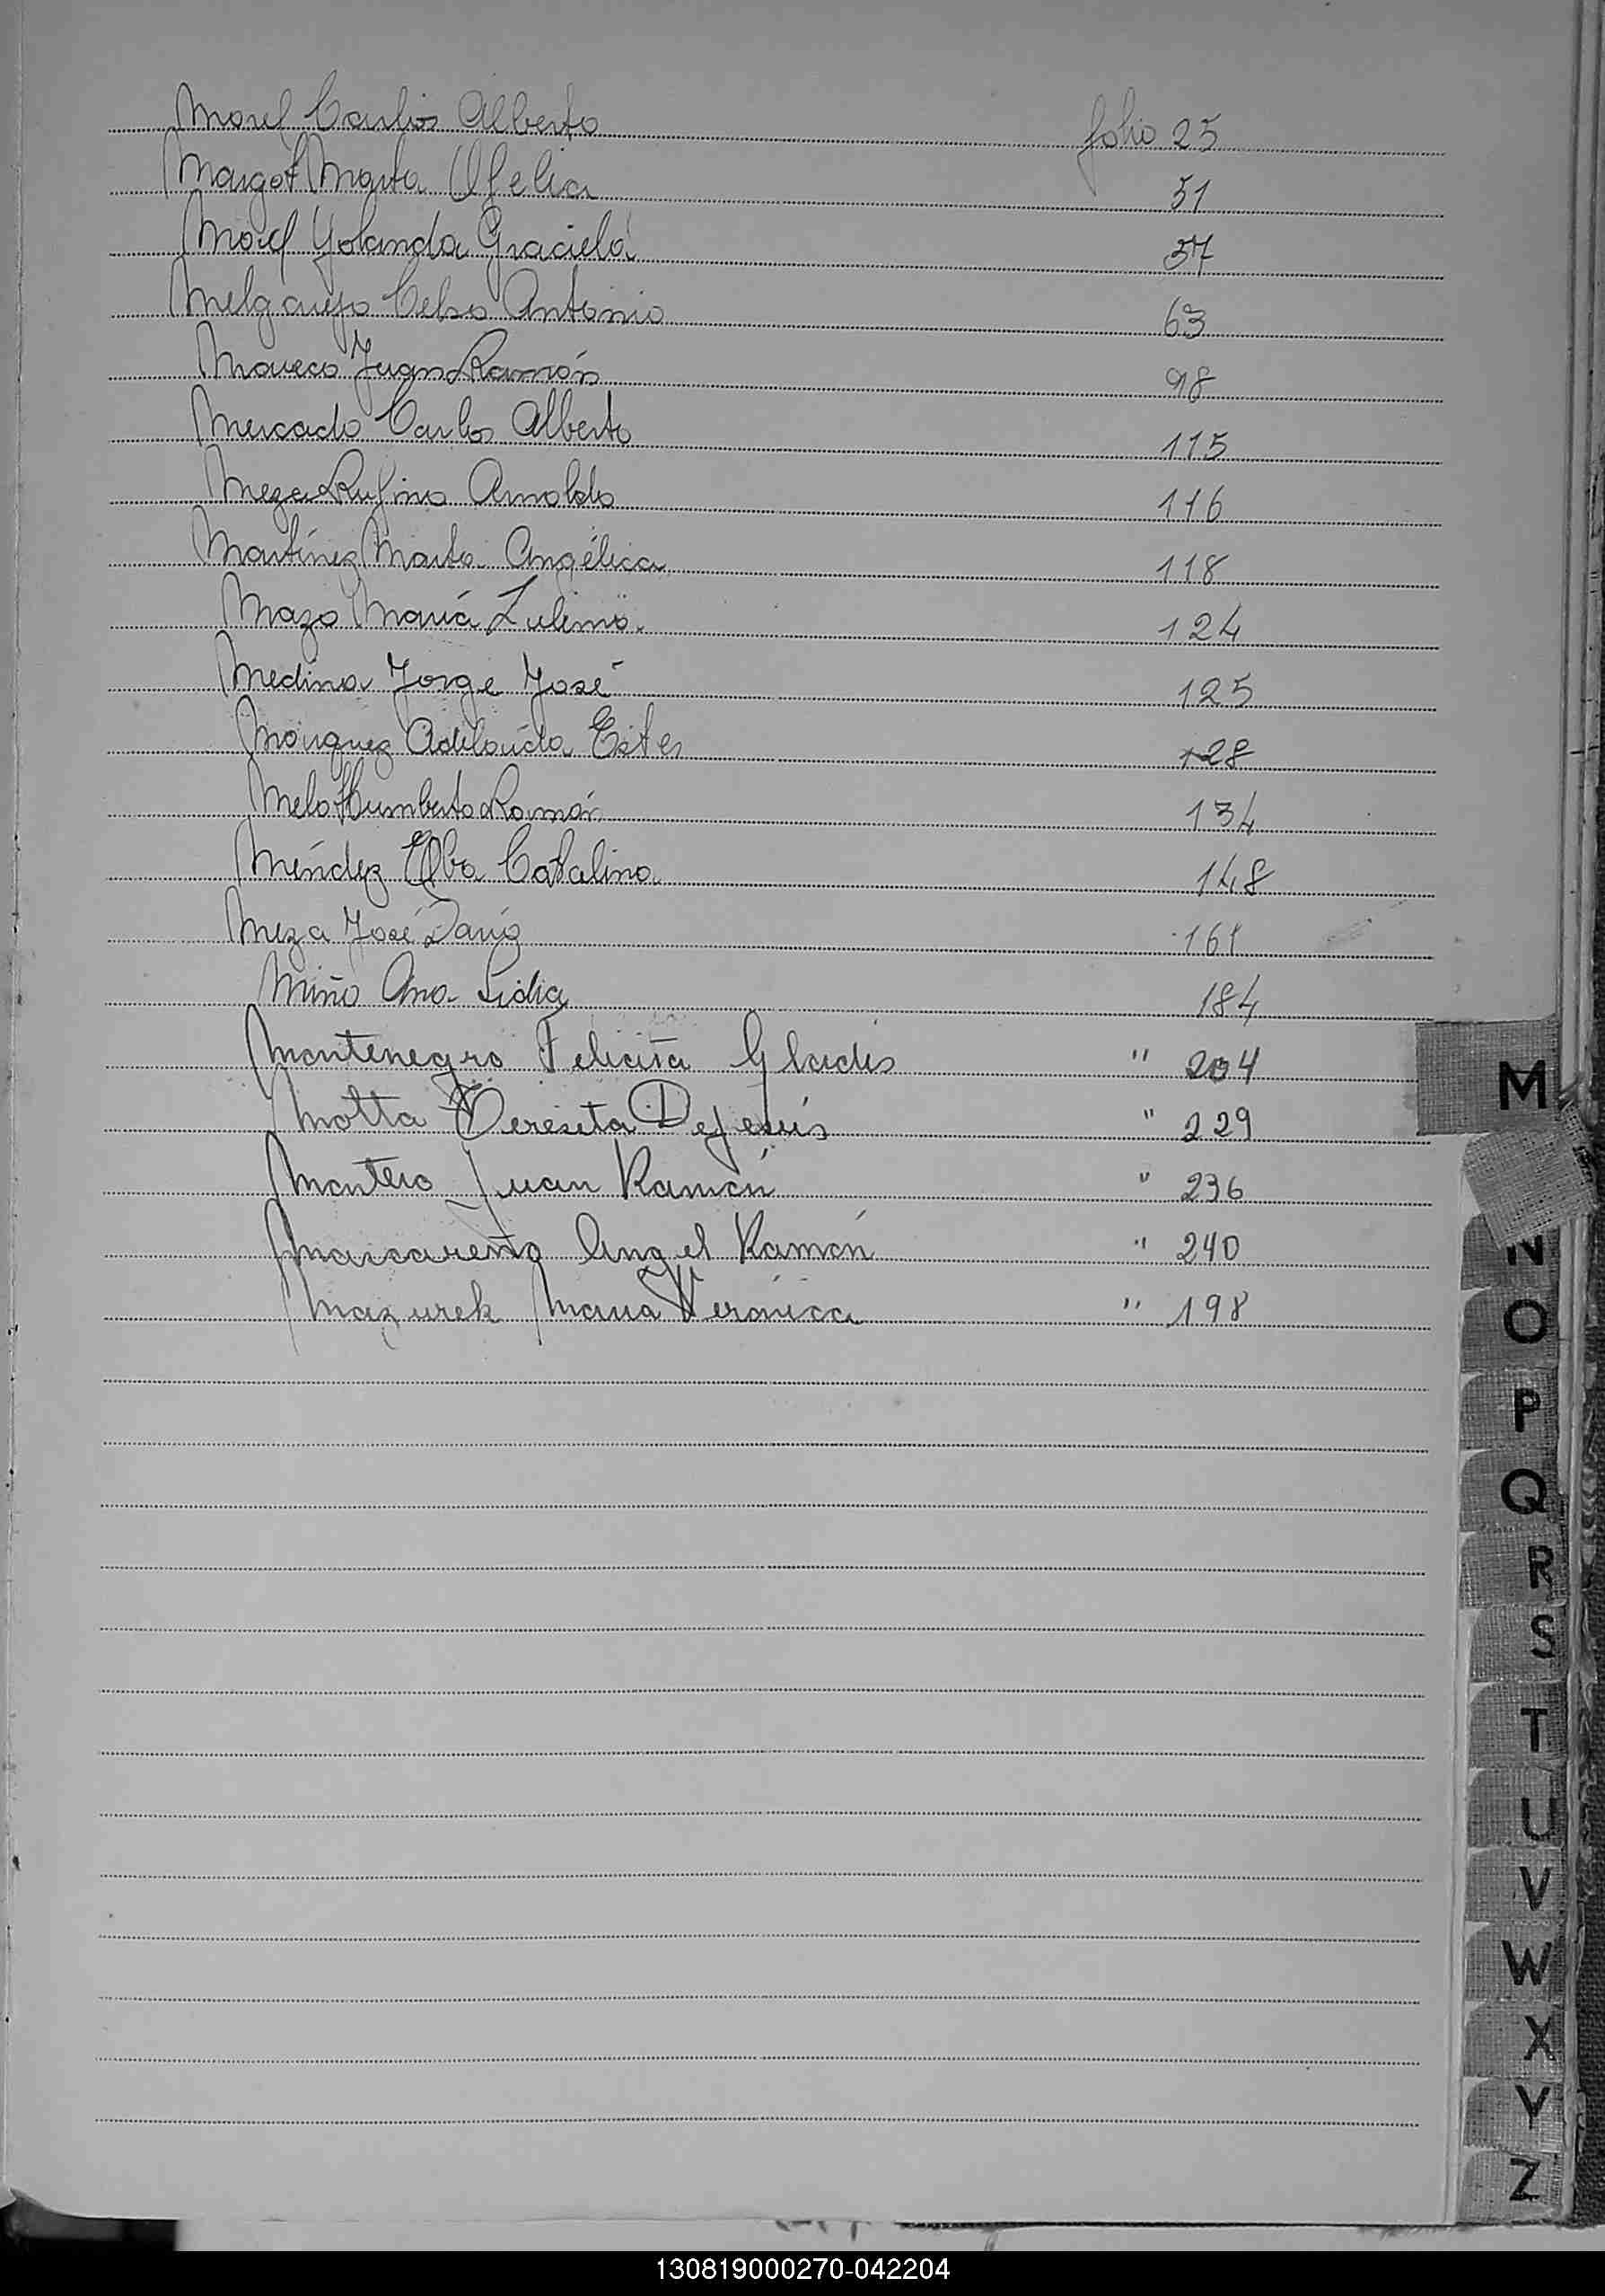 Morel Carlos Alberto folio 25
Margot Marta Ofelia 51
Morel Yolanda Graciela 57
Melgarejo Celso Antonio 63
Mareco Juan Ramón 98
Mercado Carlos Alberto 115
Meza Rufino Arnoldo 116
Martínez Marta Angélica 118
Mazo María Zulema 124
Medina Jorge José 125
Márquez Adelaida Ester 128
Melo Humberto Ramón 134
Méndez Elba Catalina 148
Meza José Darío 161
Miño Ana Lidia 184
Montenegro Felicita Gladis " 204
Motta Teresita De Jesús " 229
Montero Juan Ramón " 236
Mascareño Angel Ramón " 240
Mazurek María Verónica " 198
M
N
O
P
Q
R
S
T
U
V
W
X
Y
Z
130819000270-042204